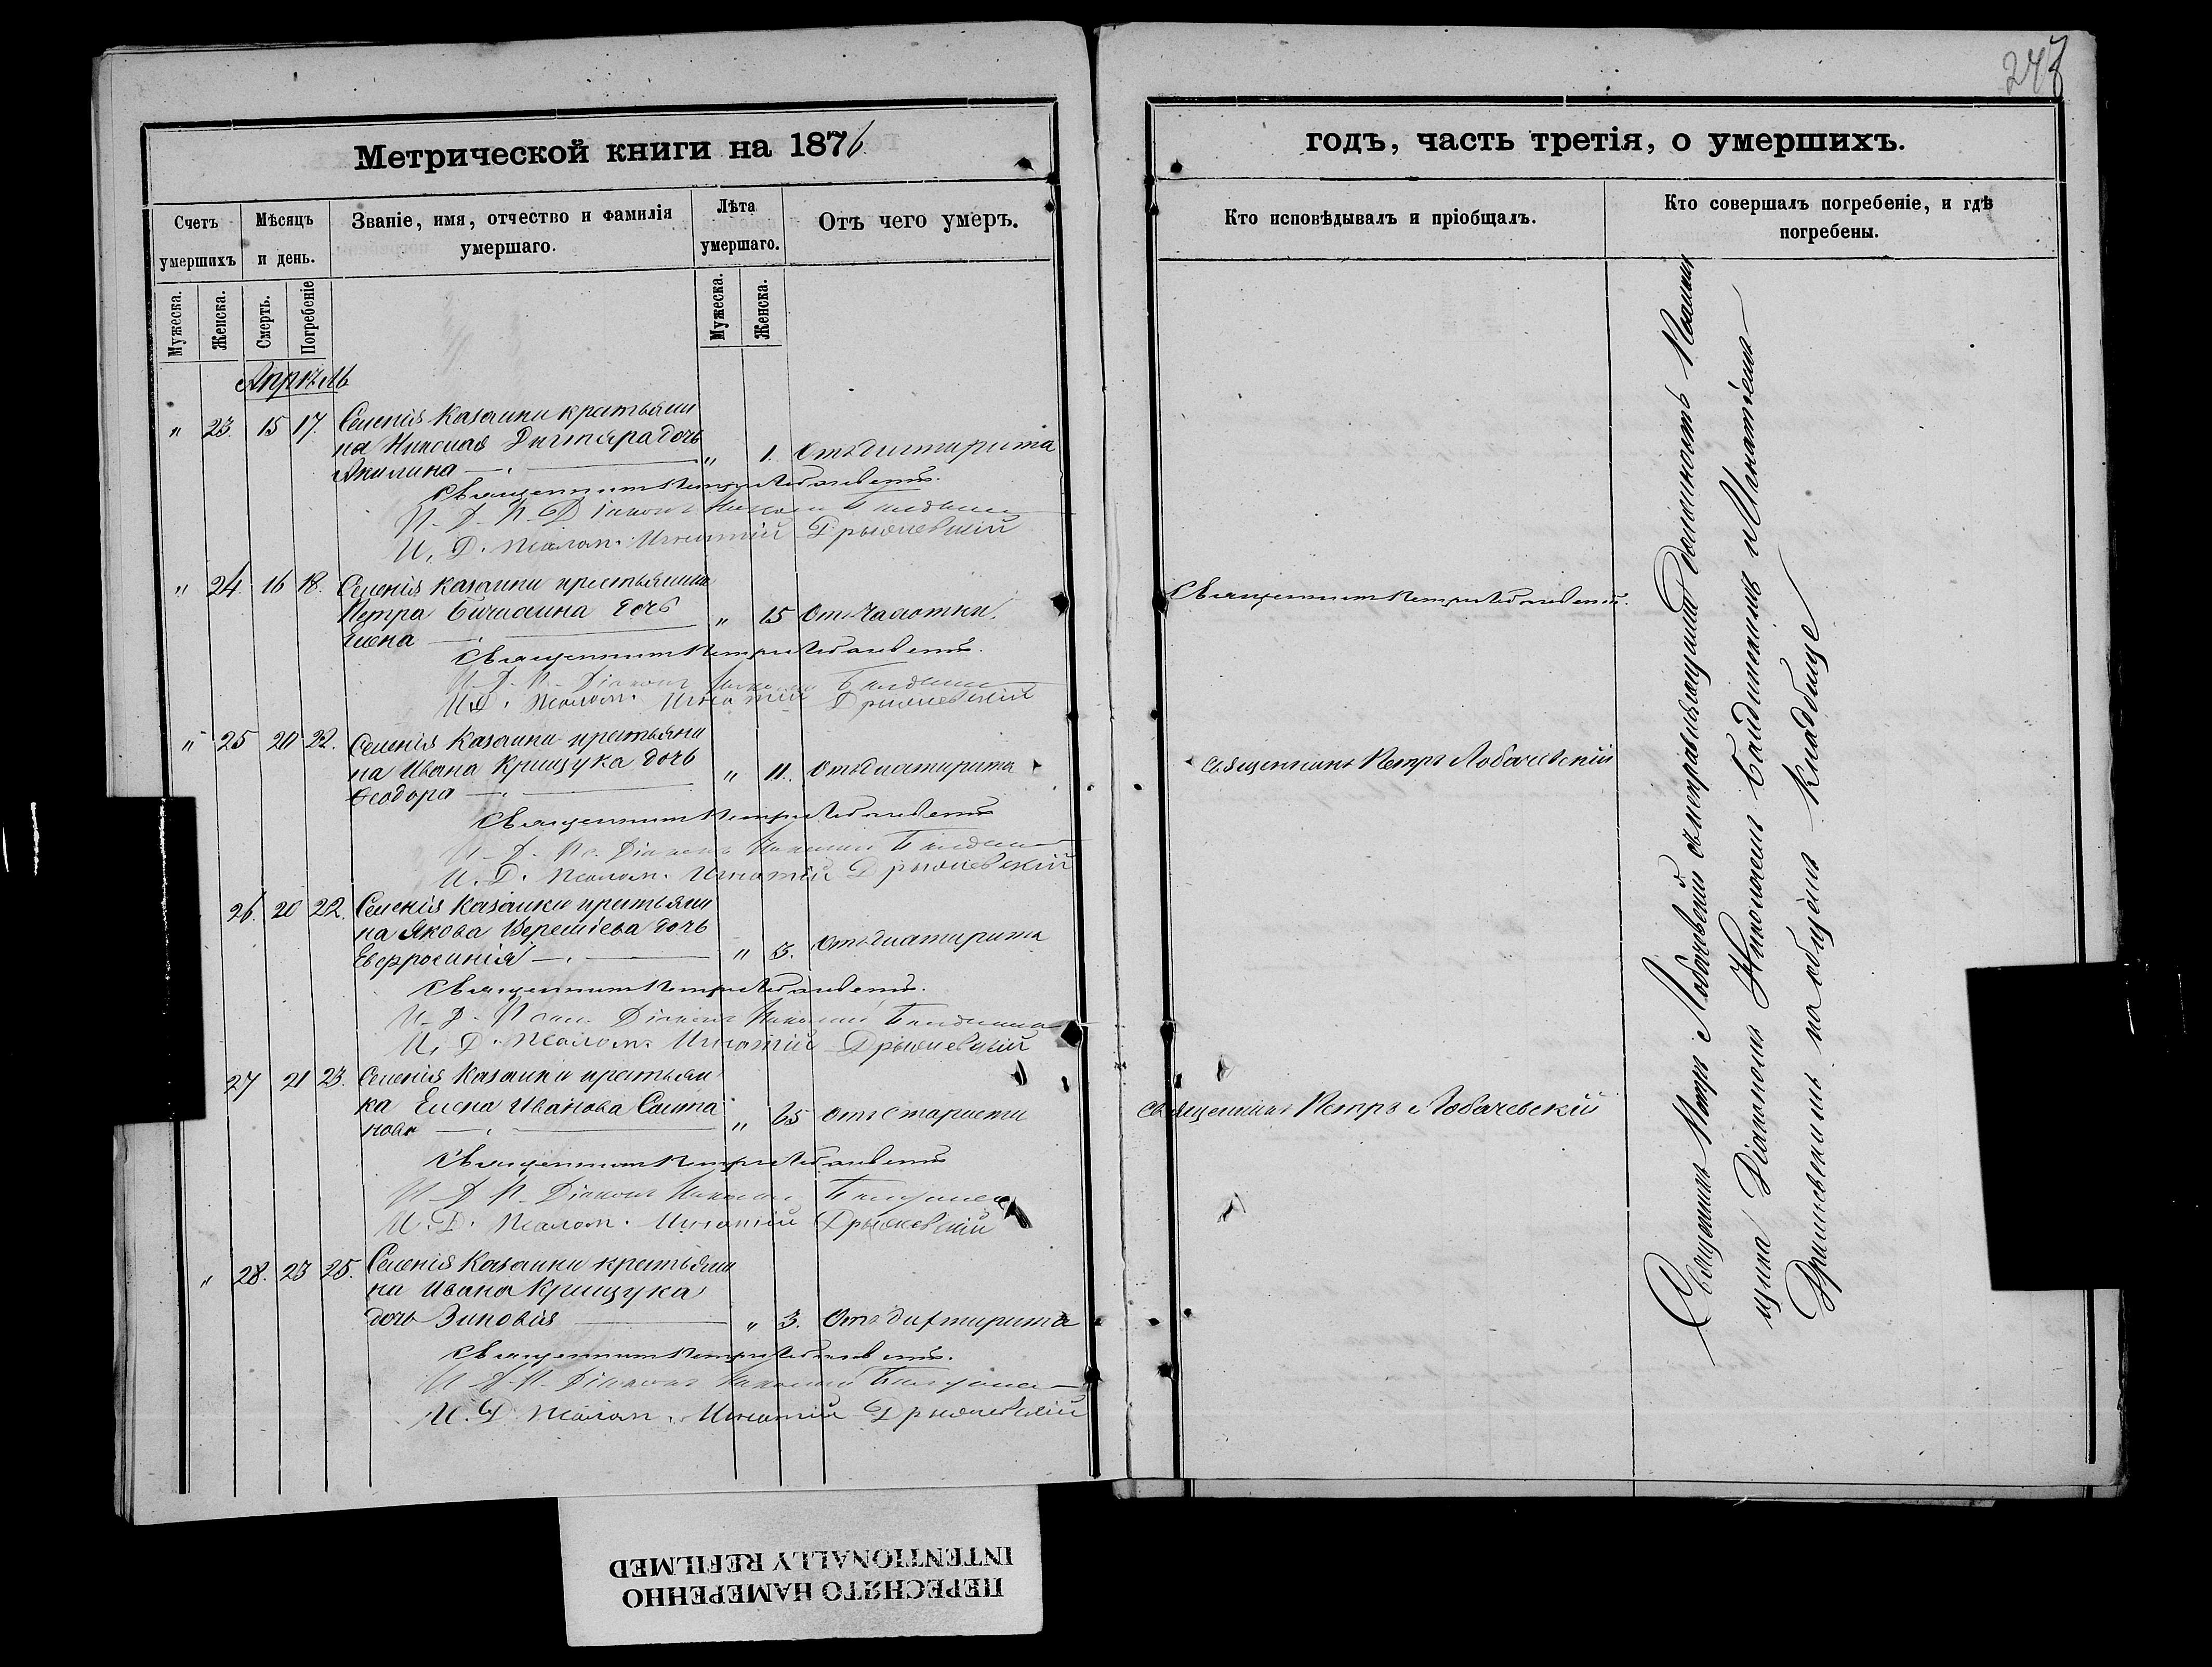 247
Метрической книги на 1876
годъ, часть третія, о умершихъ.
Счетъ умершихъ
Мѣсяцъ и день.
Званіе, имя, отчество и фамилія умершаго.
Лѣта умершаго.
Отъ чего умеръ.
Кто исповѣдывалъ и пріобщалъ.
Кто совершалъ погребеніе, и гдѣ погребены.
Мужеска.
Женска.
Смерть.
Погребеніе
Мужеска.
Женска.
Апрѣль
" 23. 15 17. Селенія Казанки крестьяни
на Николая дочь " 1. Отъ дифтерита
Акилина
Священникъ Петръ Лобачевскій
И. Д. П. Діаконъ Николай
И. Д. Псалом. Игнатій
" 24. 16 18. Селенія Казанки крестьянина
Петра дочь " 15 Отъ чахотки.
Елена
Священникъ Петръ Лобачевскій.
Священникъ Петръ Лобачевскій.
И. Д. П. Діаконъ Николай
И. Д. Псалом. Игнатій
" 25 20 22. Селенія Казанки крестьяни
на Ивана Крищука дочь " 11. Отъ дифтерита
Ѳеодора
Священникъ Петръ Лобачевскій
Священникъ Петръ Лобачевскій
И. Д. Пс. Діаконъ Николай
И. Д. Псалом. Игнатій
26. 20 22. Селенія Казанки крестьяни
на Якова дочь " 3. Отъ дифтерита
Евфросинія
Священникъ Петръ Лобачевскій.
И. Д. Псал. Діаконъ Николай
И. Д. Псалом. Игнатій
27 21 23. Селенія Казанки крестьян
ка Елена Иванова " 65 Отъ старости
нова
Священникъ Петръ Лобачевскій
Священникъ Петръ Лобачевскій
И. Д. П. Діаконъ Николай
И. Д. Псалом. Игнатій
" 28. 23 25. Селенія Казанки крестьяни
на Ивана Крищука
дочь Зиновія " 3. Отъ дифтерита
Священникъ Петръ Лобачевскій.
И. Д. П. Діаконъ Николай
И. Д. Псалом. Игнатій
Священникъ Петръ Лобачевскій съ исправляющими должность Псалом
щика Діакономъ Николаемъ и Игнатіемъ
на общемъ кладбище
ПЕРЕСНЯТО НАМЕРЕННО
INTENTIONALLY REFILMED